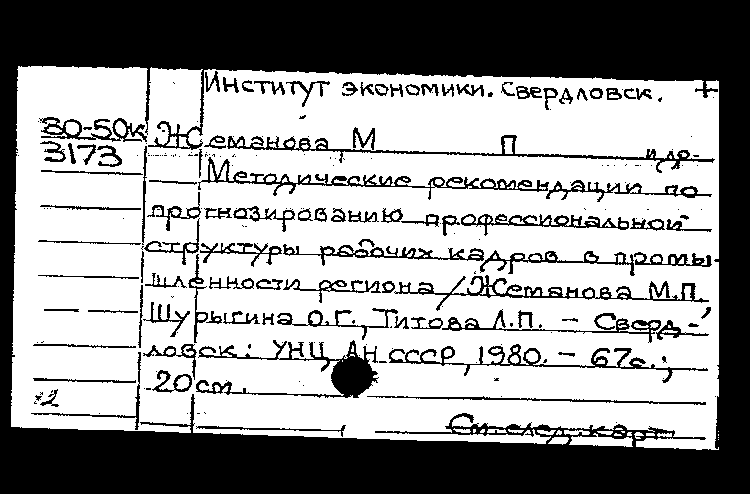 Институт экономики. Свердловск. +
80-50к Жеманова М П и др.
3173
Методические рекомендации по
прогнозированию профессиональной
структуры рабочих кадров в промы-
шленности региона / Жеманова М.П.,
Шурыгина О.Г., Титова Л.П. - Сверд-
ловск: УНЦ АН СССР, 1980. - 67с.;
20см.
См. след. карт